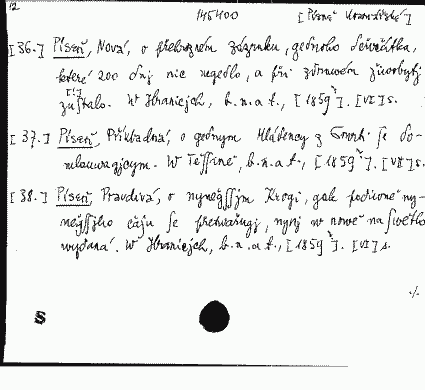 12
145400 [Písně kramářské]
[36.] Píseň, Nová, o přehrozném zázraku, gednoho děvčátka,
které 200 dnj nic negedlo, a při zdrawém žiwobytj
zů[!]stalo. W Hranicých, b.n.a t., [1859?]. [VI] s.
[37.] Píseň, Přjkladná, o gednym Mládency z Smrtj se do-
mlauwagjcym. W Těssjně, b.n.a t., [1859?]. [VII] s.
[38.] Píseň, Prawdiwá, o nyněgssjm Krogi, gak podiwně ny-
něgssjho čásu se přetwařugj, nynj w nowě na swětlo
wydaná. W Hranicých, b.n.a t., [1859?]. [VI] s.
./.
S